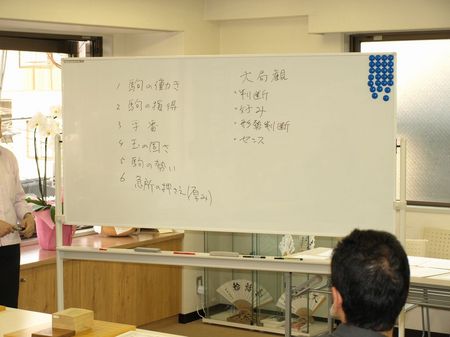 1 駒の働き
2 駒の損得
3 手番
4 玉の固さ
5 駒の勢い
6 急所の押さえ(厚み)
大局観
・判断
・読み
・形勢判断
・センス